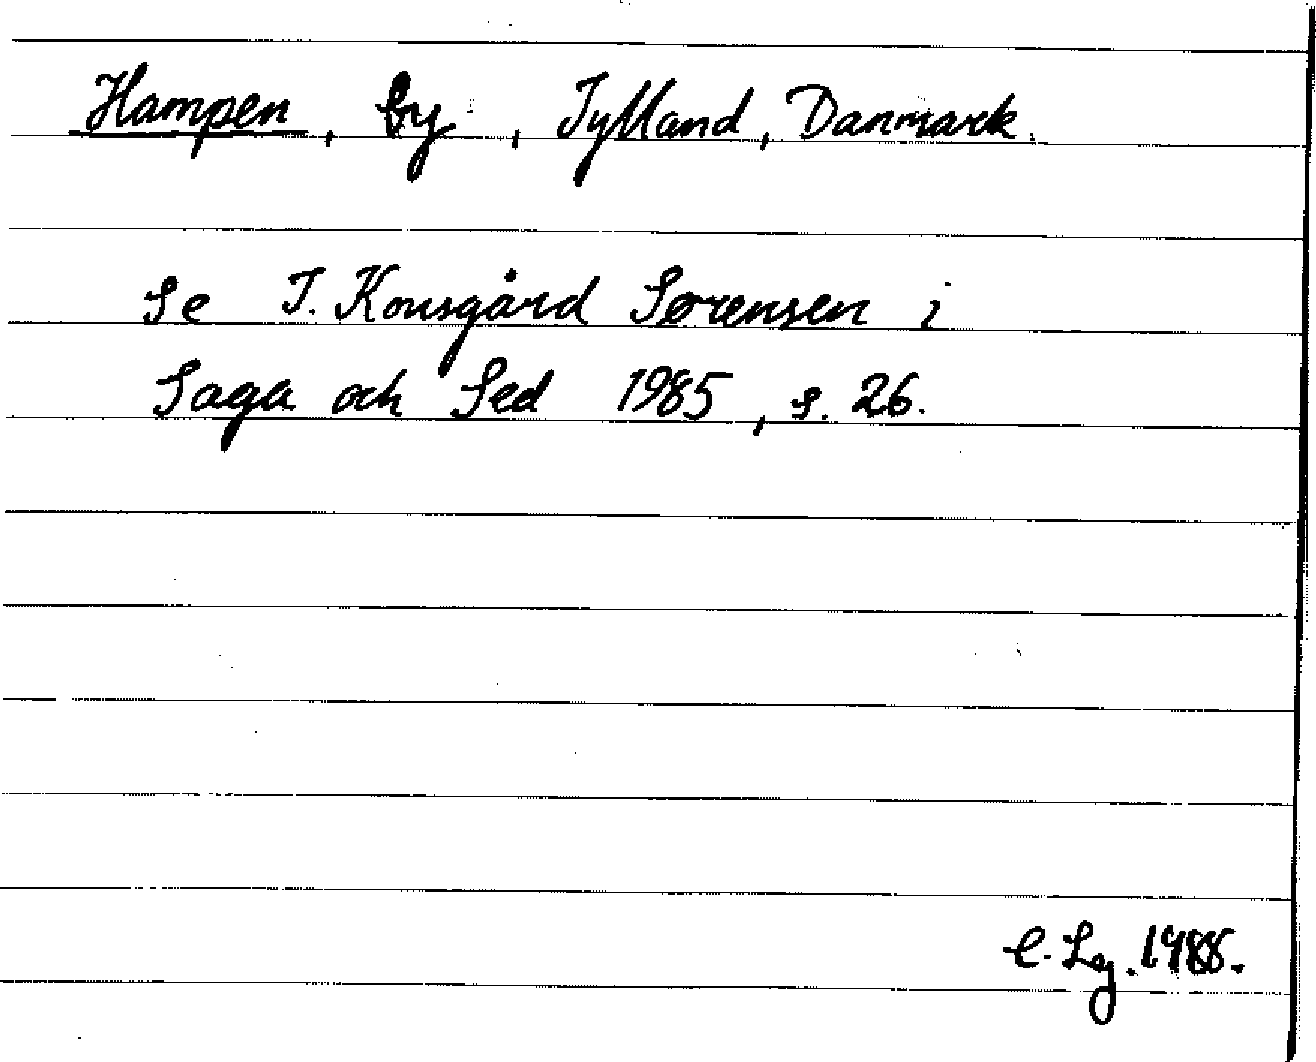 Hampen, by, Jylland, Danmark.
Se J. Kousgård Sørensen i
Saga och Sed 1985, s. 26.
C. Lg. 1988.